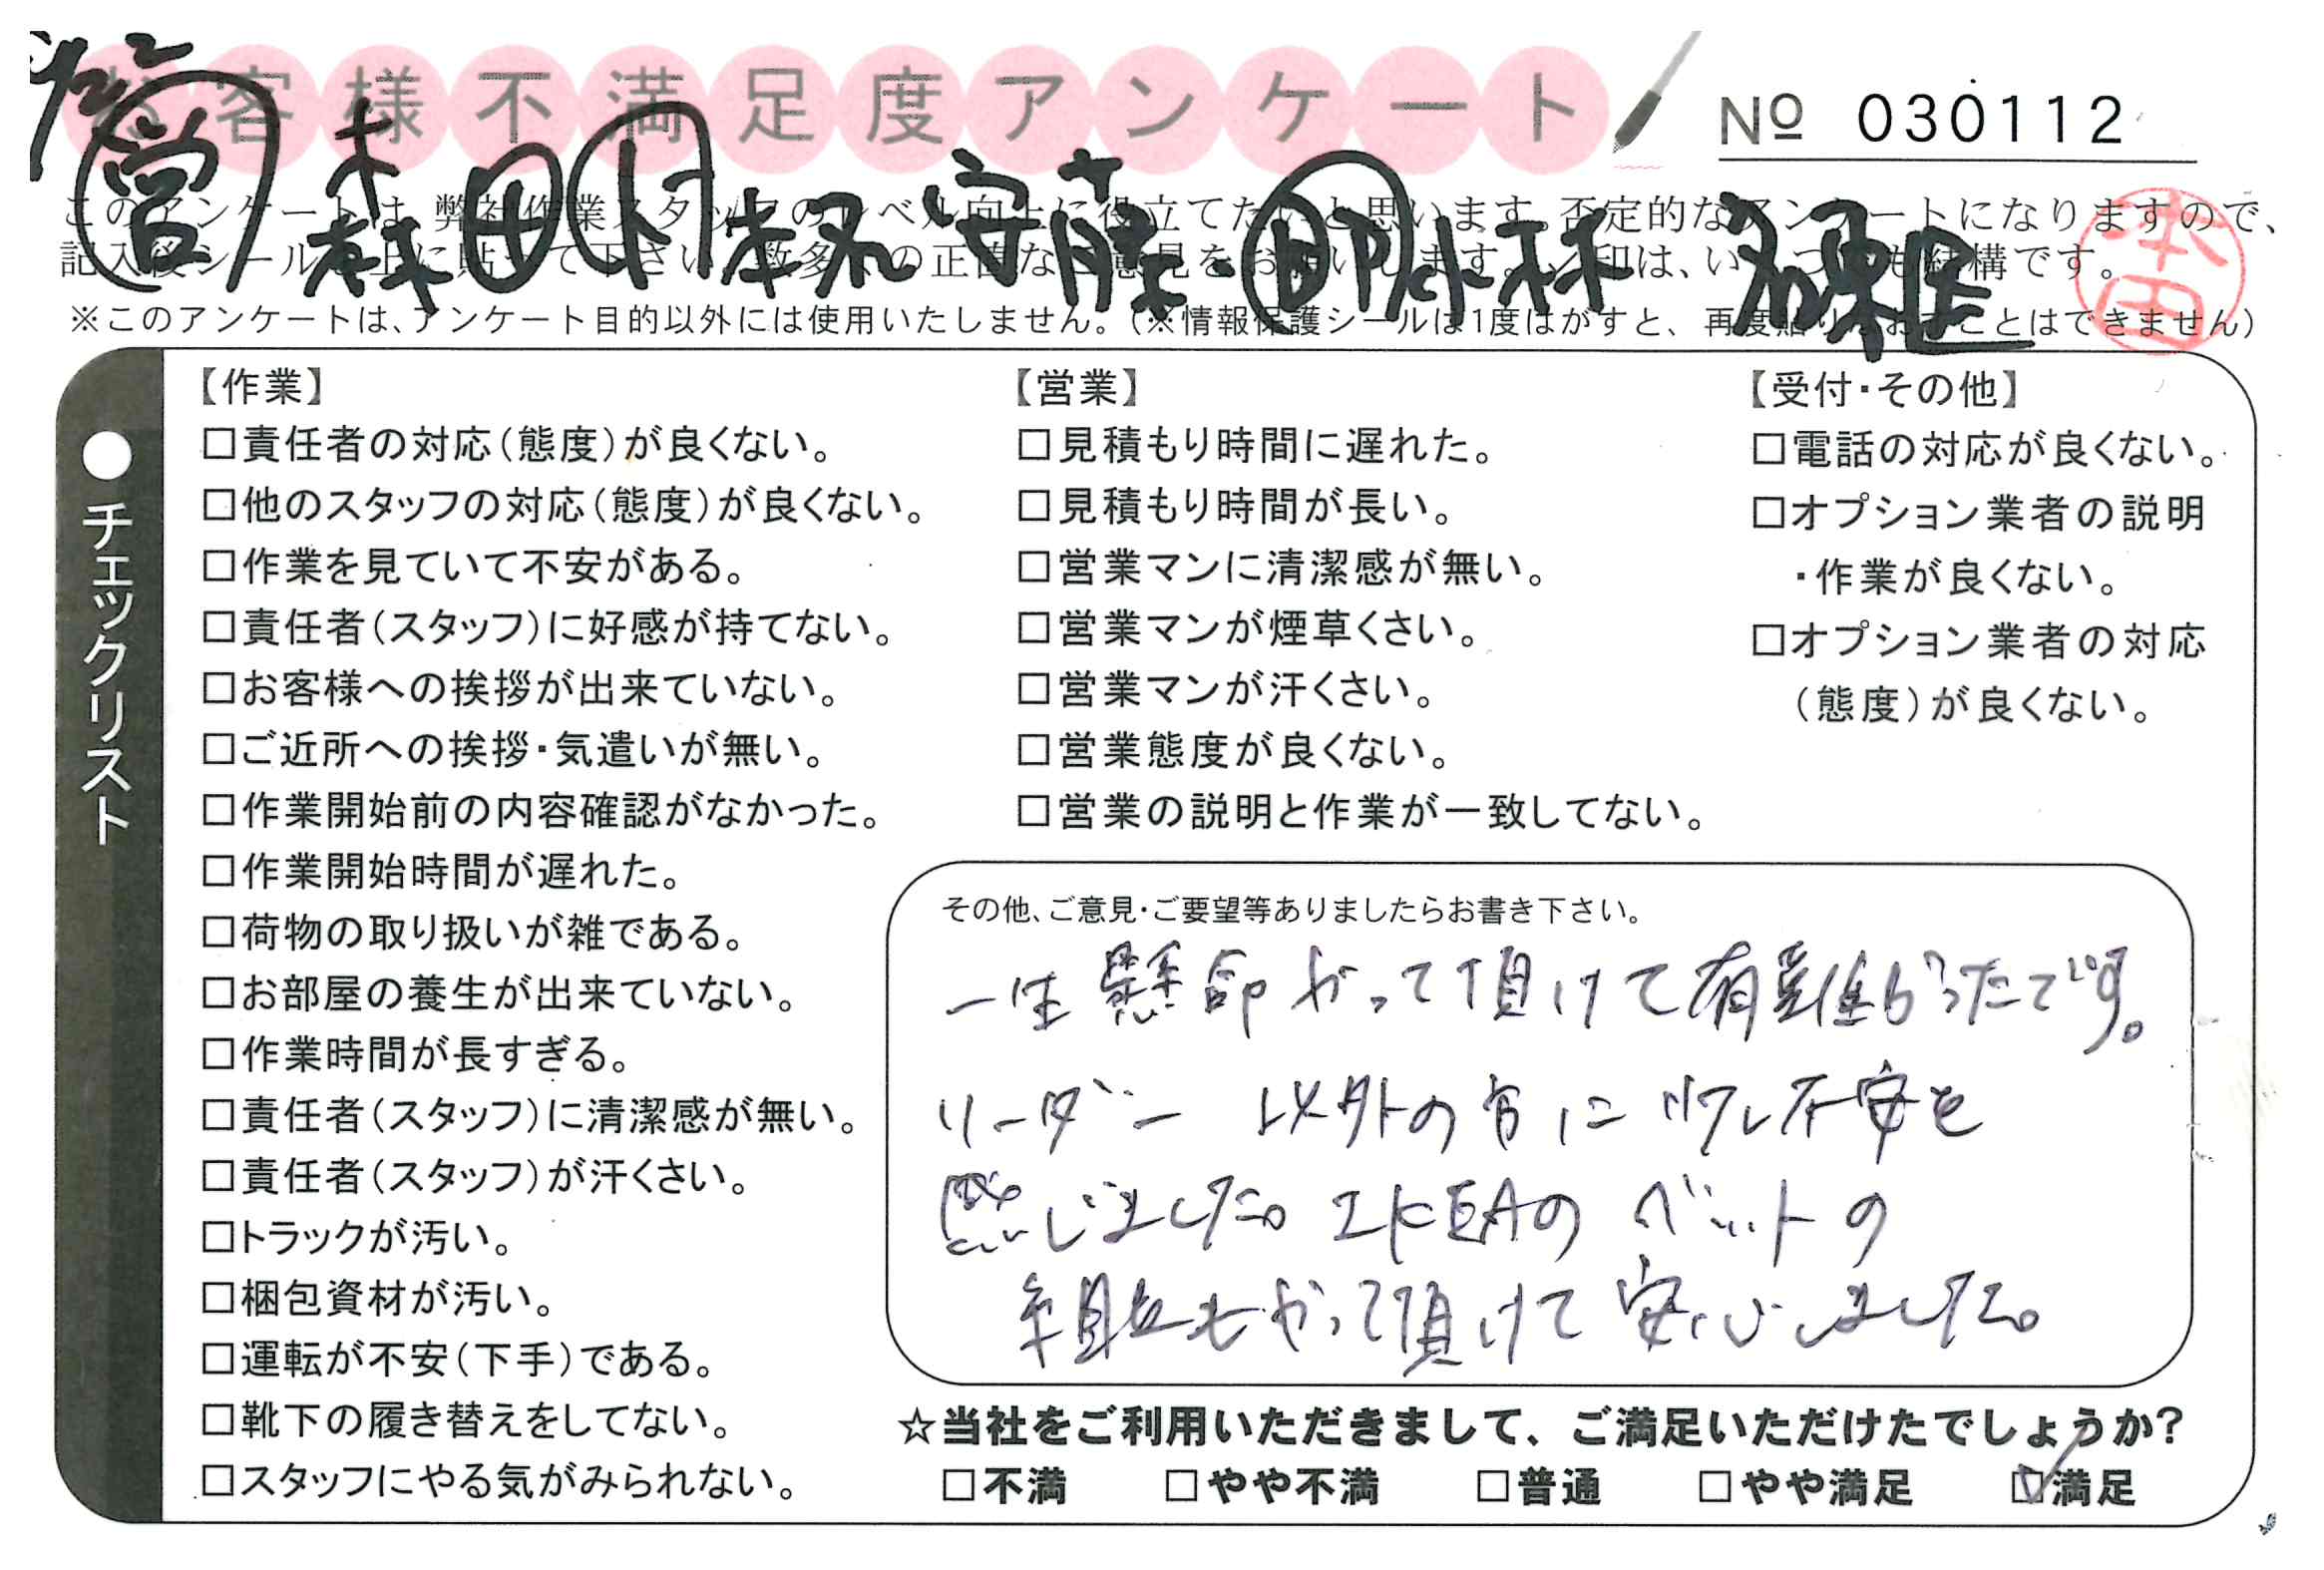 お客様不満足度アンケート
№ 030112
営 森田 作 安藤・助 小林
本田
このアンケートは、弊社作業スタッフのレベル向上に役立てたいと思います。否定的なアンケートになりますので、
記入後シールを上に貼って下さい。数多くの正直なご意見をお願いします。レ印は、いくつでも結構です。
※このアンケートは、アンケート目的以外には使用いたしません。(※情報保護シールは1度はがすと、再度貼りなおすことはできません)
●チェックリスト
【作業】
□責任者の対応(態度)が良くない。
□他のスタッフの対応(態度)が良くない。
□作業を見ていて不安がある。
□責任者(スタッフ)に好感が持てない。
□お客様への挨拶が出来ていない。
□ご近所への挨拶・気遣いが無い。
□作業開始前の内容確認がなかった。
□作業開始時間が遅れた。
□荷物の取り扱いが雑である。
□お部屋の養生が出来ていない。
□作業時間が長すぎる。
□責任者(スタッフ)に清潔感が無い。
□責任者(スタッフ)が汗くさい。
□トラックが汚い。
□梱包資材が汚い。
□運転が不安(下手)である。
□靴下の履き替えをしてない。
□スタッフにやる気がみられない。
【営業】
□見積もり時間に遅れた。
□見積もり時間が長い。
□営業マンに清潔感が無い。
□営業マンが煙草くさい。
□営業マンが汗くさい。
□営業態度が良くない。
□営業の説明と作業が一致してない。
【受付・その他】
□電話の対応が良くない。
□オプション業者の説明
・作業が良くない。
□オプション業者の対応
(態度)が良くない。
その他、ご意見・ご要望等ありましたらお書き下さい。
一生懸命やって頂けて有難かったです。
リーダー以外の方に少し不安を
感じました。IKEAのベットの
組立もやって頂けて安心しました。
☆当社をご利用いただきまして、ご満足いただけたでしょうか?
□不満 □やや不満 □普通 □やや満足 ☑満足